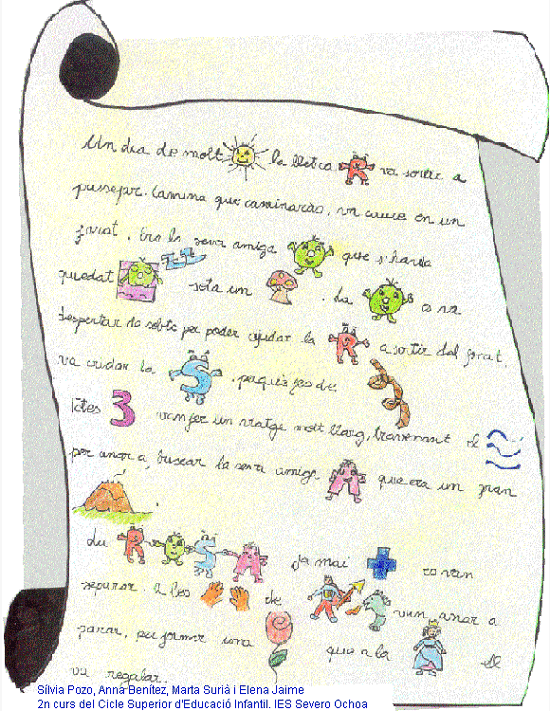 Un dia de molt la lletra R va sortir a
passejar. Camina que caminaràs, va caure en un
forat. Era la seva amiga que s'havia
quedat sota un . La es va
despertar de sobte per poder ajudar la R a sortir del forat,
va cridar la S, perquè fes de
Totes 3 van fer un viatge molt llarg, travessant el
per anar a buscar la seva amiga A que era un gran
.
La R O S A ja mai + es van
separar. a les de van anar a
parar, per formar una que a la el
va regalar.
Sílvia Pozo, Anna Benítez, Marta Surià i Elena Jaime
2n curs del Cicle Superior d'Educació Infantil. IES Severo Ochoa